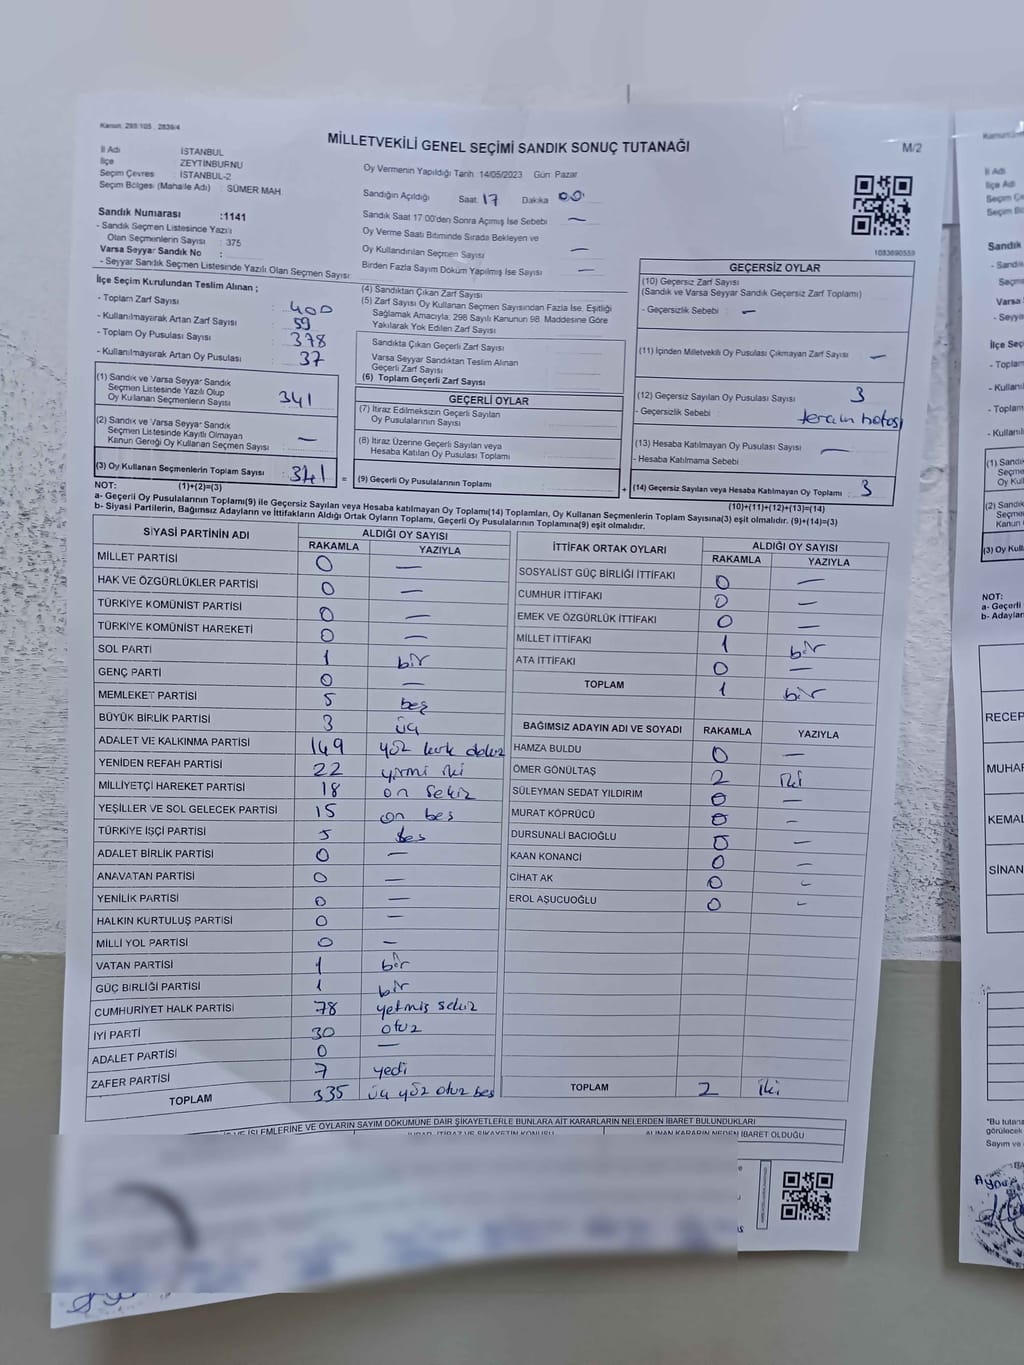 Kanun: 298/105 , 2839/4
MİLLETVEKİLİ GENEL SEÇİMİ SANDIK SONUÇ TUTANAĞI
M/2
İl Adı İSTANBUL
İlçe ZEYTİNBURNU
Seçim Çevres : İSTANBUL-2
Seçim Bölges (Mahalle Adı) : SÜMER MAH.
Sandık Numarası :1141
- Sandık Seçmen Listesinde Yazılı
Olan Seçmenlerin Sayısı : 375
Varsa Seyyar Sandık No :
- Seyyar Sandık Seçmen Listesinde Yazılı Olan Seçmen Sayısı
Oy Vermenin Yapıldığı Tarih 14/05/2023 Gün Pazar
Sandığın Açıldığı Saat 17 Dakika 00
Sandık Saat 17 00'den Sonra Açımış İse Sebebi —
Oy Verme Saati Bitiminde Sırada Bekleyen ve
Oy Kullandırılan Seçmen Sayısı —
Birden Fazla Sayım Döküm Yapılmış İse Sayısı —
1083690559
İlçe Seçim Kurulundan Teslim Alınan ;
- Toplam Zarf Sayısı 400
- Kullanılmayarak Artan Zarf Sayısı 59
- Toplam Oy Pusulası Sayısı 378
- Kullanılmayarak Artan Oy Pusulası 37
(1) Sandık ve Varsa Seyyar Sandık
Seçmen Listesinde Yazılı Olup
Oy Kullanan Seçmenlerin Sayısı 341
(2) Sandık ve Varsa Seyyar Sandık
Seçmen Listesinde Kayıtlı Olmayan
Kanun Gereği Oy Kullanan Seçmen Sayısı —
(3) Oy Kullanan Seçmenlerin Toplam Sayısı 341
(4) Sandıktan Çıkan Zarf Sayısı
(5) Zarf Sayısı Oy Kullanan Seçmen Sayısından Fazla İse, Eşitliği
Sağlamak Amacıyla, 298 Sayılı Kanunun 98. Maddesine Göre
Yakılarak Yok Edilen Zarf Sayısı
Sandıkta Çıkan Geçerli Zarf Sayısı
Varsa Seyyar Sandıktan Teslim Alınan
Geçerli Zarf Sayısı
(6) Toplam Geçerli Zarf Sayısı
GEÇERLİ OYLAR
(7) İtiraz Edilmeksizin Geçerli Sayılan
Oy Pusulalarının Sayısı
(8) İtiraz Üzerine Geçerli Sayılan veya
Hesaba Katılan Oy Pusulası Toplamı
= (9) Geçerli Oy Pusulalarının Toplamı
GEÇERSİZ OYLAR
(10) Geçersiz Zarf Sayısı
(Sandık ve Varsa Seyyar Sandık Geçersiz Zarf Toplamı)
- Geçersizlik Sebebi : —
(11) İçinden Milletvekili Oy Pusulası Çıkmayan Zarf Sayısı —
(12) Geçersiz Sayılan Oy Pusulası Sayısı 3
- Geçersizlik Sebebi : tercih hatası
(13) Hesaba Katılmayan Oy Pusulası Sayısı —
- Hesaba Katılmama Sebebi
+ (14) Geçersiz Sayılan veya Hesaba Katılmayan Oy Toplamı : 3
NOT: (1)+(2)=(3) (10)+(11)+(12)+(13)=(14)
a- Geçerli Oy Pusulalarının Toplamı(9) ile Geçersiz Sayılan veya Hesaba katılmayan Oy Toplamı(14) Toplamları, Oy Kullanan Seçmenlerin Toplam Sayısına(3) eşit olmalıdır. (9)+(14)=(3)
b- Siyasi Partilerin, Bağımsız Adayların ve İttifakların Aldığı Ortak Oyların Toplamı, Geçerli Oy Pusulalarının Toplamına(9) eşit olmalıdır.
SİYASİ PARTİNİN ADI ALDIĞI OY SAYISI
RAKAMLA YAZIYLA
MİLLET PARTİSİ 0 —
HAK VE ÖZGÜRLÜKLER PARTİSİ 0 —
TÜRKİYE KOMÜNİST PARTİSİ 0 —
TÜRKİYE KOMÜNİST HAREKETİ 0 —
SOL PARTİ 1 bir
GENÇ PARTİ 0 —
MEMLEKET PARTİSİ 5 beş
BÜYÜK BİRLİK PARTİSİ 3 üç
ADALET VE KALKINMA PARTİSİ 149 yüz kırk dokuz
YENİDEN REFAH PARTİSİ 22 yirmi iki
MİLLİYETÇİ HAREKET PARTİSİ 18 on sekiz
YEŞİLLER VE SOL GELECEK PARTİSİ 15 on beş
TÜRKİYE İŞÇİ PARTİSİ 5 beş
ADALET BİRLİK PARTİSİ 0 —
ANAVATAN PARTİSİ 0 —
YENİLİK PARTİSİ 0 —
HALKIN KURTULUŞ PARTİSİ 0 —
MİLLİ YOL PARTİSİ 0 —
VATAN PARTİSİ 1 bir
GÜÇ BİRLİĞİ PARTİSİ 1 bir
CUMHURİYET HALK PARTİSİ 78 yetmiş sekiz
İYİ PARTİ 30 otuz
ADALET PARTİSİ 0 —
ZAFER PARTİSİ 7 yedi
TOPLAM 335 üç yüz otuz beş
İTTİFAK ORTAK OYLARI ALDIĞI OY SAYISI
RAKAMLA YAZIYLA
SOSYALİST GÜÇ BİRLİĞİ İTTİFAKI 0 —
CUMHUR İTTİFAKI 0 —
EMEK VE ÖZGÜRLÜK İTTİFAKI 0 —
MİLLET İTTİFAKI 1 bir
ATA İTTİFAKI 0 —
TOPLAM 1 bir
BAĞIMSIZ ADAYIN ADI VE SOYADI RAKAMLA YAZIYLA
HAMZA BULDU 0 —
ÖMER GÖNÜLTAŞ 2 iki
SÜLEYMAN SEDAT YILDIRIM 0 —
MURAT KÖPRÜCÜ 0 —
DURSUNALİ BACIOĞLU 0 —
KAAN KONANCİ 0 —
CİHAT AK 0 —
EROL AŞUCUOĞLU 0 —
TOPLAM 2 iki
İŞLEMLERİNE VE OYLARIN SAYIM DÖKÜMÜNE DAİR ŞİKAYETLERLE BUNLARA AİT KARARLARIN NELERDEN İBARET BULUNDUKLARI
İTİRAZ VE ŞİKAYETİN KONUSU ALINAN KARARIN NEDEN İBARET OLDUĞU
İl Adı
İlçe Adı
Sandık
Varsa
İlçe Seç
- Toplam
- Kullanıl
- Toplam
- Kullanıl
(1) Sandı
Seçme
(2) Sandı
NOT:
a- Geçerli
b- Adaylar
RECEP
MUHAR
KEMAL
SİNAN
*Bu tutana
görülecek
Sayım ve